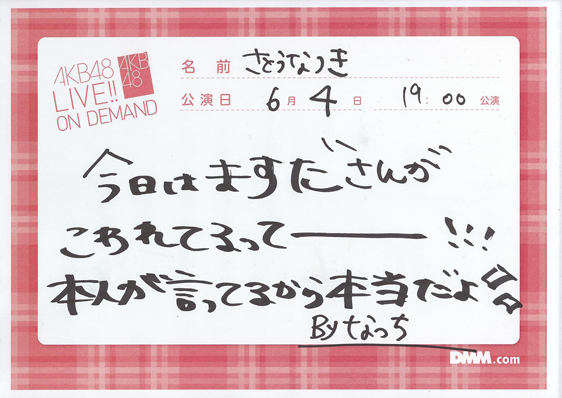 AKB48
LIVE!!
ON DEMAND
AKB
48
名前 さとうなつき
公演日 6月4日 19:00公演
今日はますださんが
こわれてるって―――!!!
本人が言ってるから本当だよ
Byなっち
DMM.com